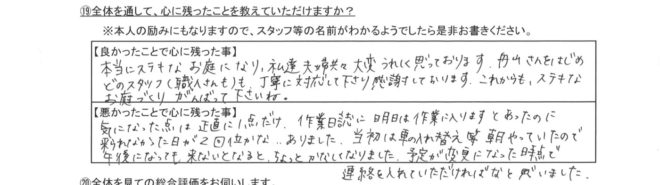 ⑲全体を通して、心に残ったことを教えていただけますか？
※本人の励みにもなりますので、スタッフ等の名前がわかるようでしたら是非お書きください。
【良かったことで心に残った事】
本当にステキなお庭になり、私達夫婦共々大変うれしく思っております。舟山さんをはじめ
どのスタッフ（職人さんも）も、丁寧に対応して下さり感謝しております。これからも、ステキな
お庭づくり がんばって下さいね。
【悪かったことで心に残った事】
気になった点は正直に1点だけ。作業日誌に 明日は作業に入りますとあったのに
来られなかった日が2回位かな…ありました。当初は車の入れ替え等 朝やっていたので
午後になっても来ないとなると、ちょっとかなしくなりました。予定が変更になった時点で
連絡を入れていただければなと思いました。
⑳全体を見ての総合評価をお伺いします。